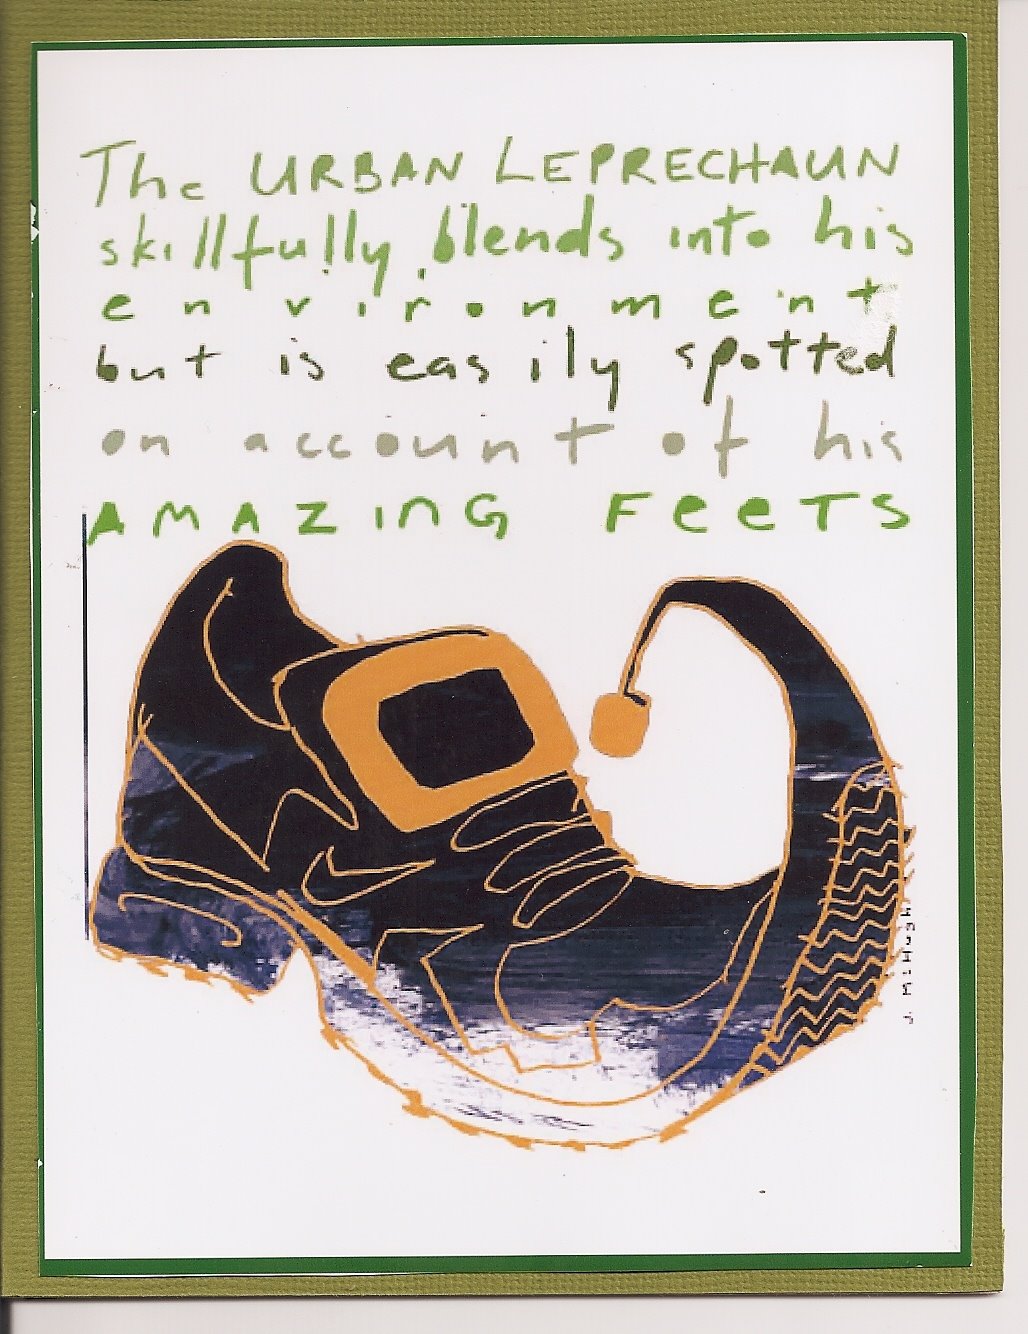 The URBAN LEPRECHAUN
skillfully blends into his
environment
but is easily spotted
on account of his
AMAZING FEETS
J. McHugh